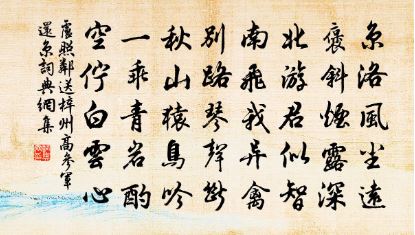 京洛風塵遠
褒斜煙露深
北游君似智
南飛我异禽
別路琴聲斷
秋山猿鳥吟
一乖青岩酌
空佇白雲心
盧照鄰送梓州高參軍
還京詞典網集